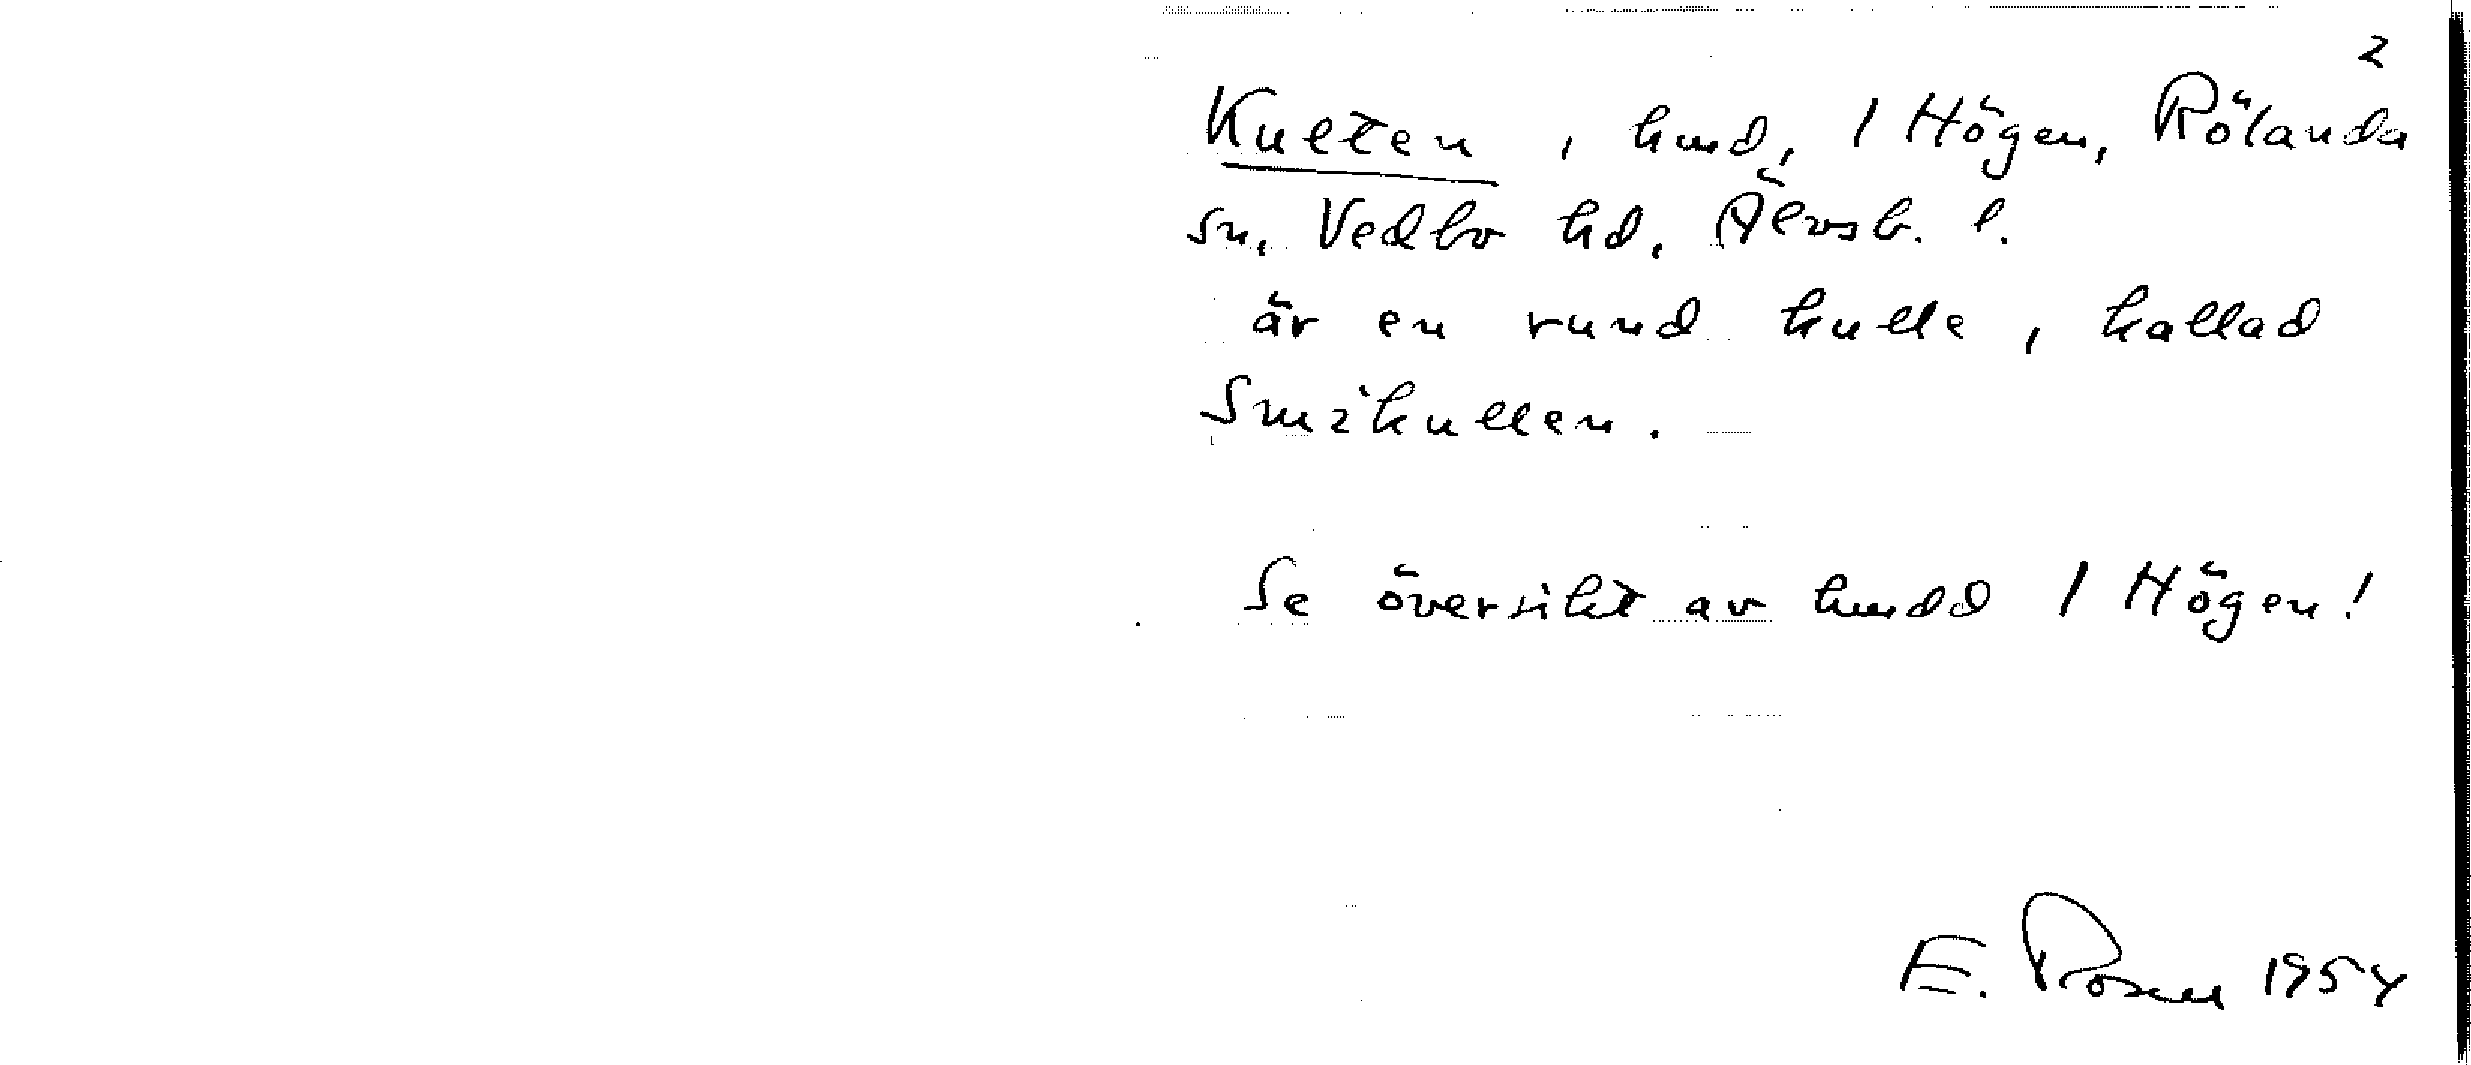 2
Kulten, hmd, 1 Högen, Rölanda
sn, Vedbo hd, Älvsb. l.
är en rund kulle, kallad
Småkullen.
Se översikt av hmdd 1 Högen!
E. Rosell 1954